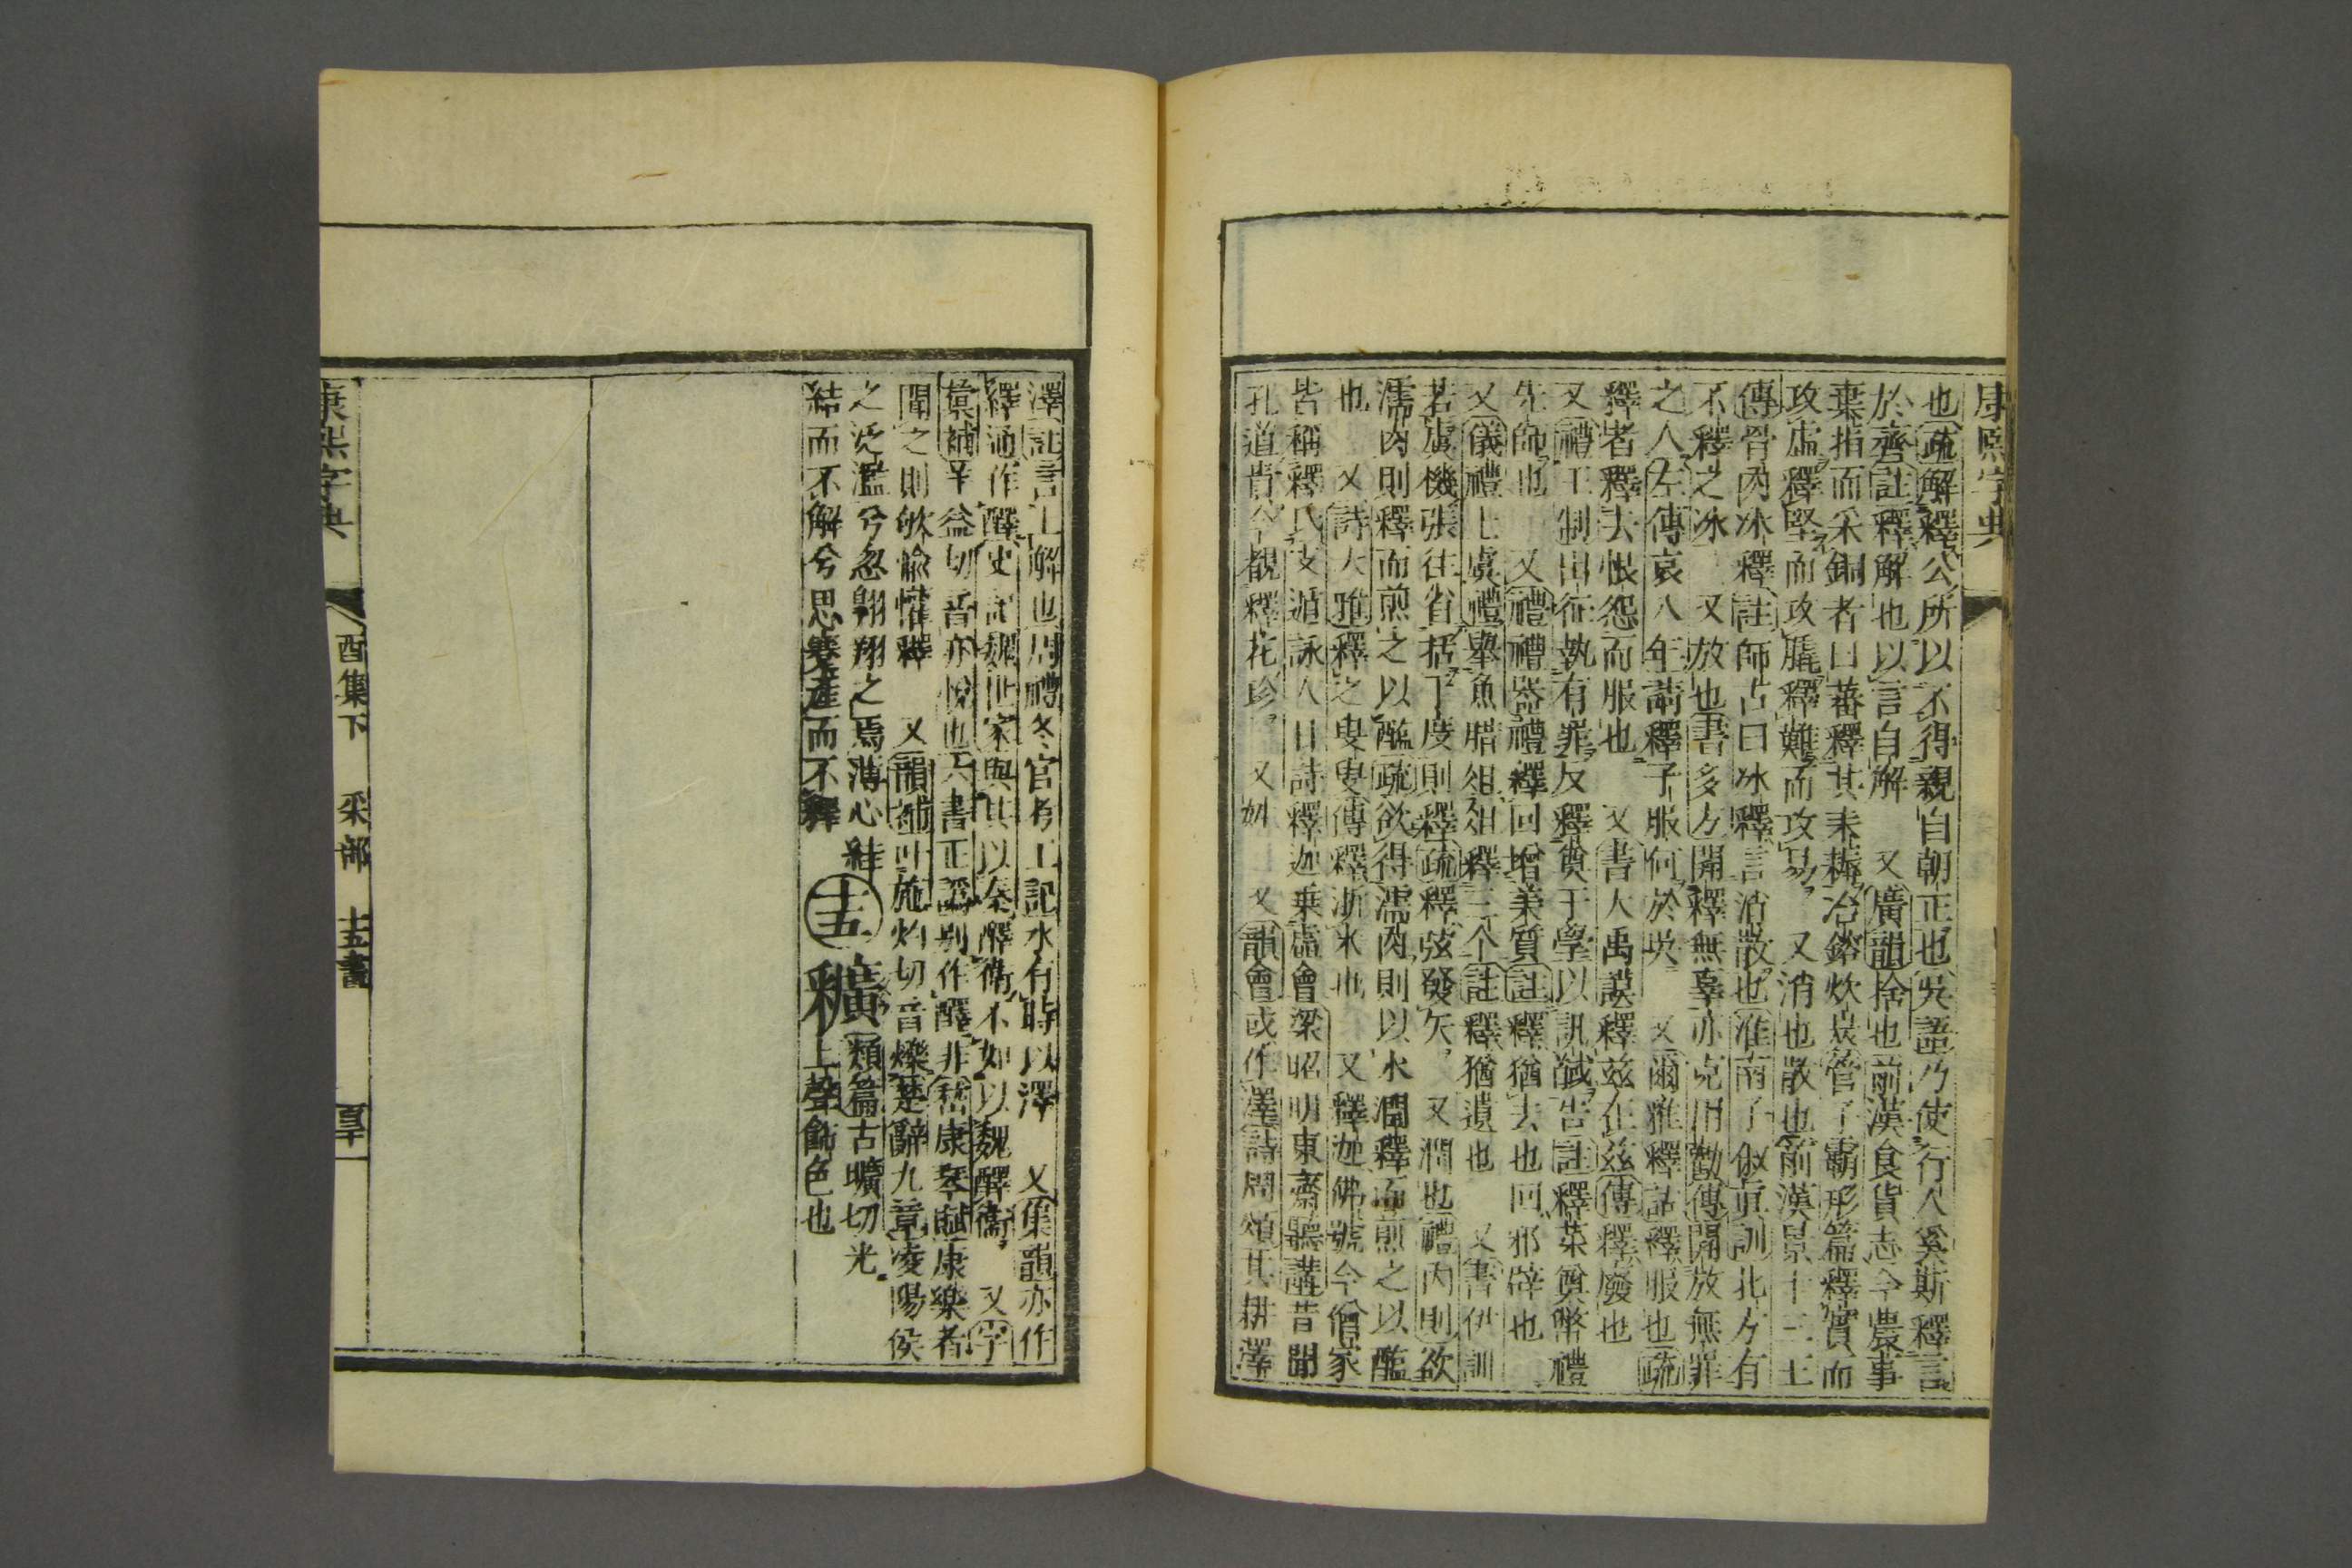 康熙字典
也疏解釋公所以不得親自朝正也吳語乃使行人奚斯釋言
於齊註釋解也以言自解　又廣韻捨也前漢食貨志今農事
棄捐而采銅者日蕃釋其耒耨冶鎔炊炭管子霸形篇釋實而
攻虛釋堅而攻膬釋難而攻易　又消也散也前漢景十三王
傳骨肉冰釋註師古曰冰釋言消散也淮南子俶眞訓北方有
不釋之冰　又放也書多方開釋無辜亦克用勸傳開放無罪
之人左傳哀八年請釋子服何於吳　又爾雅釋詁釋服也疏
釋者釋去恨怨而服也　又書大禹謨釋茲在茲傳釋廢也
又禮王制出征執有罪反釋奠于學以訊馘告註釋菜奠幣禮
先師也　又禮禮器禮釋回增美質註釋猶去也回邪辟也
又儀禮士虞禮舉魚腊俎俎釋三个註釋猶遺也　又書伊訓
若虞機張往省括于度則釋疏釋弦發矢　又潤也禮內則欲
濡肉則釋而煎之以醢疏欲得濡肉則以水潤釋而煎之以醢
也　又詩大雅釋之叟叟傳釋浙米也　又釋迦佛號今僧家
皆稱釋氏支遁詠八日詩釋迦乗虛會梁昭明東齋聽講昔聞
孔道貴今覩釋花珍　又姓　又韻會或作澤詩周頌其耕澤
澤註言土解也周禮冬官考工記水有時以澤　又集韻亦作
繹通作醳史記魏世家與其以秦醳衞不如以魏醳衞　又字
彙補羊益切音亦悅也六書正譌别作醳非嵇康琴賦康樂者
聞之則欨愉懽釋　又韻補叶施灼切音爍楚辭九章淩陽侯
之氾濫兮忽翱翔之焉薄心絓
結而不解兮思蹇產而不釋
十五
𥽘
類篇古曠切光
上聲飾色也
康熙字典
酉集下
釆部
十五畫